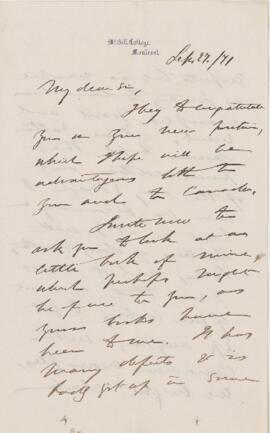 McGill College,
Montreal.
Sep 27./71
My dear Sir,
I beg to congratulate
you on your new position,
which I hope will be
advantageous both to
you and to Canada.
I write now to
ask you to look at a
little book of mine,
which perhaps might
be of use to you, as
your books have
been to me. It has
many defects & is
badly got up in some